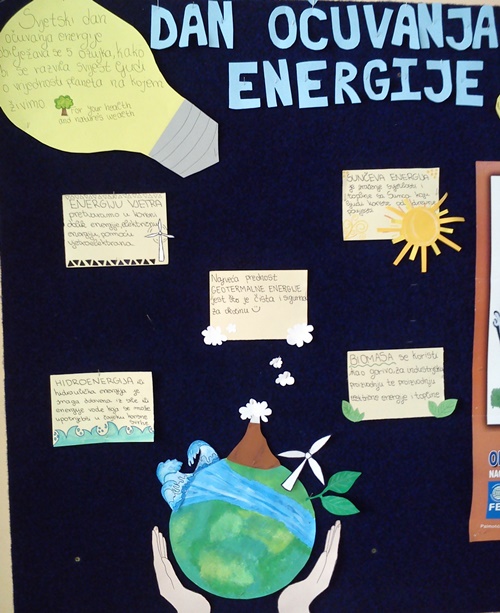 DAN OČUVANJA
ENERGIJE
Svjetski dan
očuvanja energije
obilježava se 5. ožujka, kako
bi se razvila svijest ljudi
o vrijednosti planeta na kojem
živimo
For your health
and nature's wealth
ENERGIJU VJETRA
pretvaramo u korisni
oblik energije, električnu
energiju pomoću
vjetroelektrana.
SUNČEVA ENERGIJA
je zračenje svjetlosti i
topline sa Sunca koju
ljudi koriste od
Najveća prednost
GEOTERMALNE ENERGIJE
jest što je čista i sigurna
za okolinu
HIDROENERGIJA ili
hidraulička energija je
snaga dobivena iz sile ili
energije vode koja se može
upotrijebiti u korisne
svrhe
BIOMASA se koristi
kao gorivo za industrijsku
proizvodnju te proizvodnju
električne energije i topline